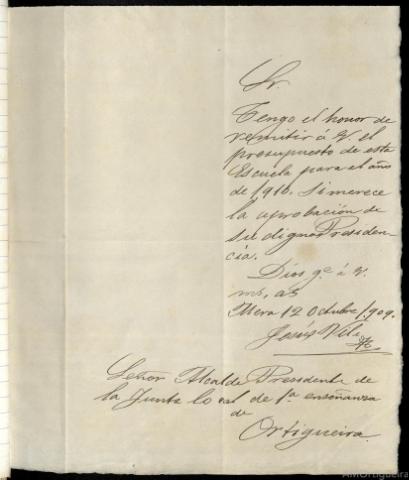 Sr.
Tengo el honor de
remitir á V. el
presupuesto de esta
Escuela para el año
de 1910. Si merece
la aprobación de
su digna Presiden-
cia.
Dios g.e á V.
ms. as
Mera 12 Octubre 1909.
Jesús
Señor Alcalde Presidente de
la Junta local de 1ª enseñanza
de
Ortigueira.
AMOrtigueira